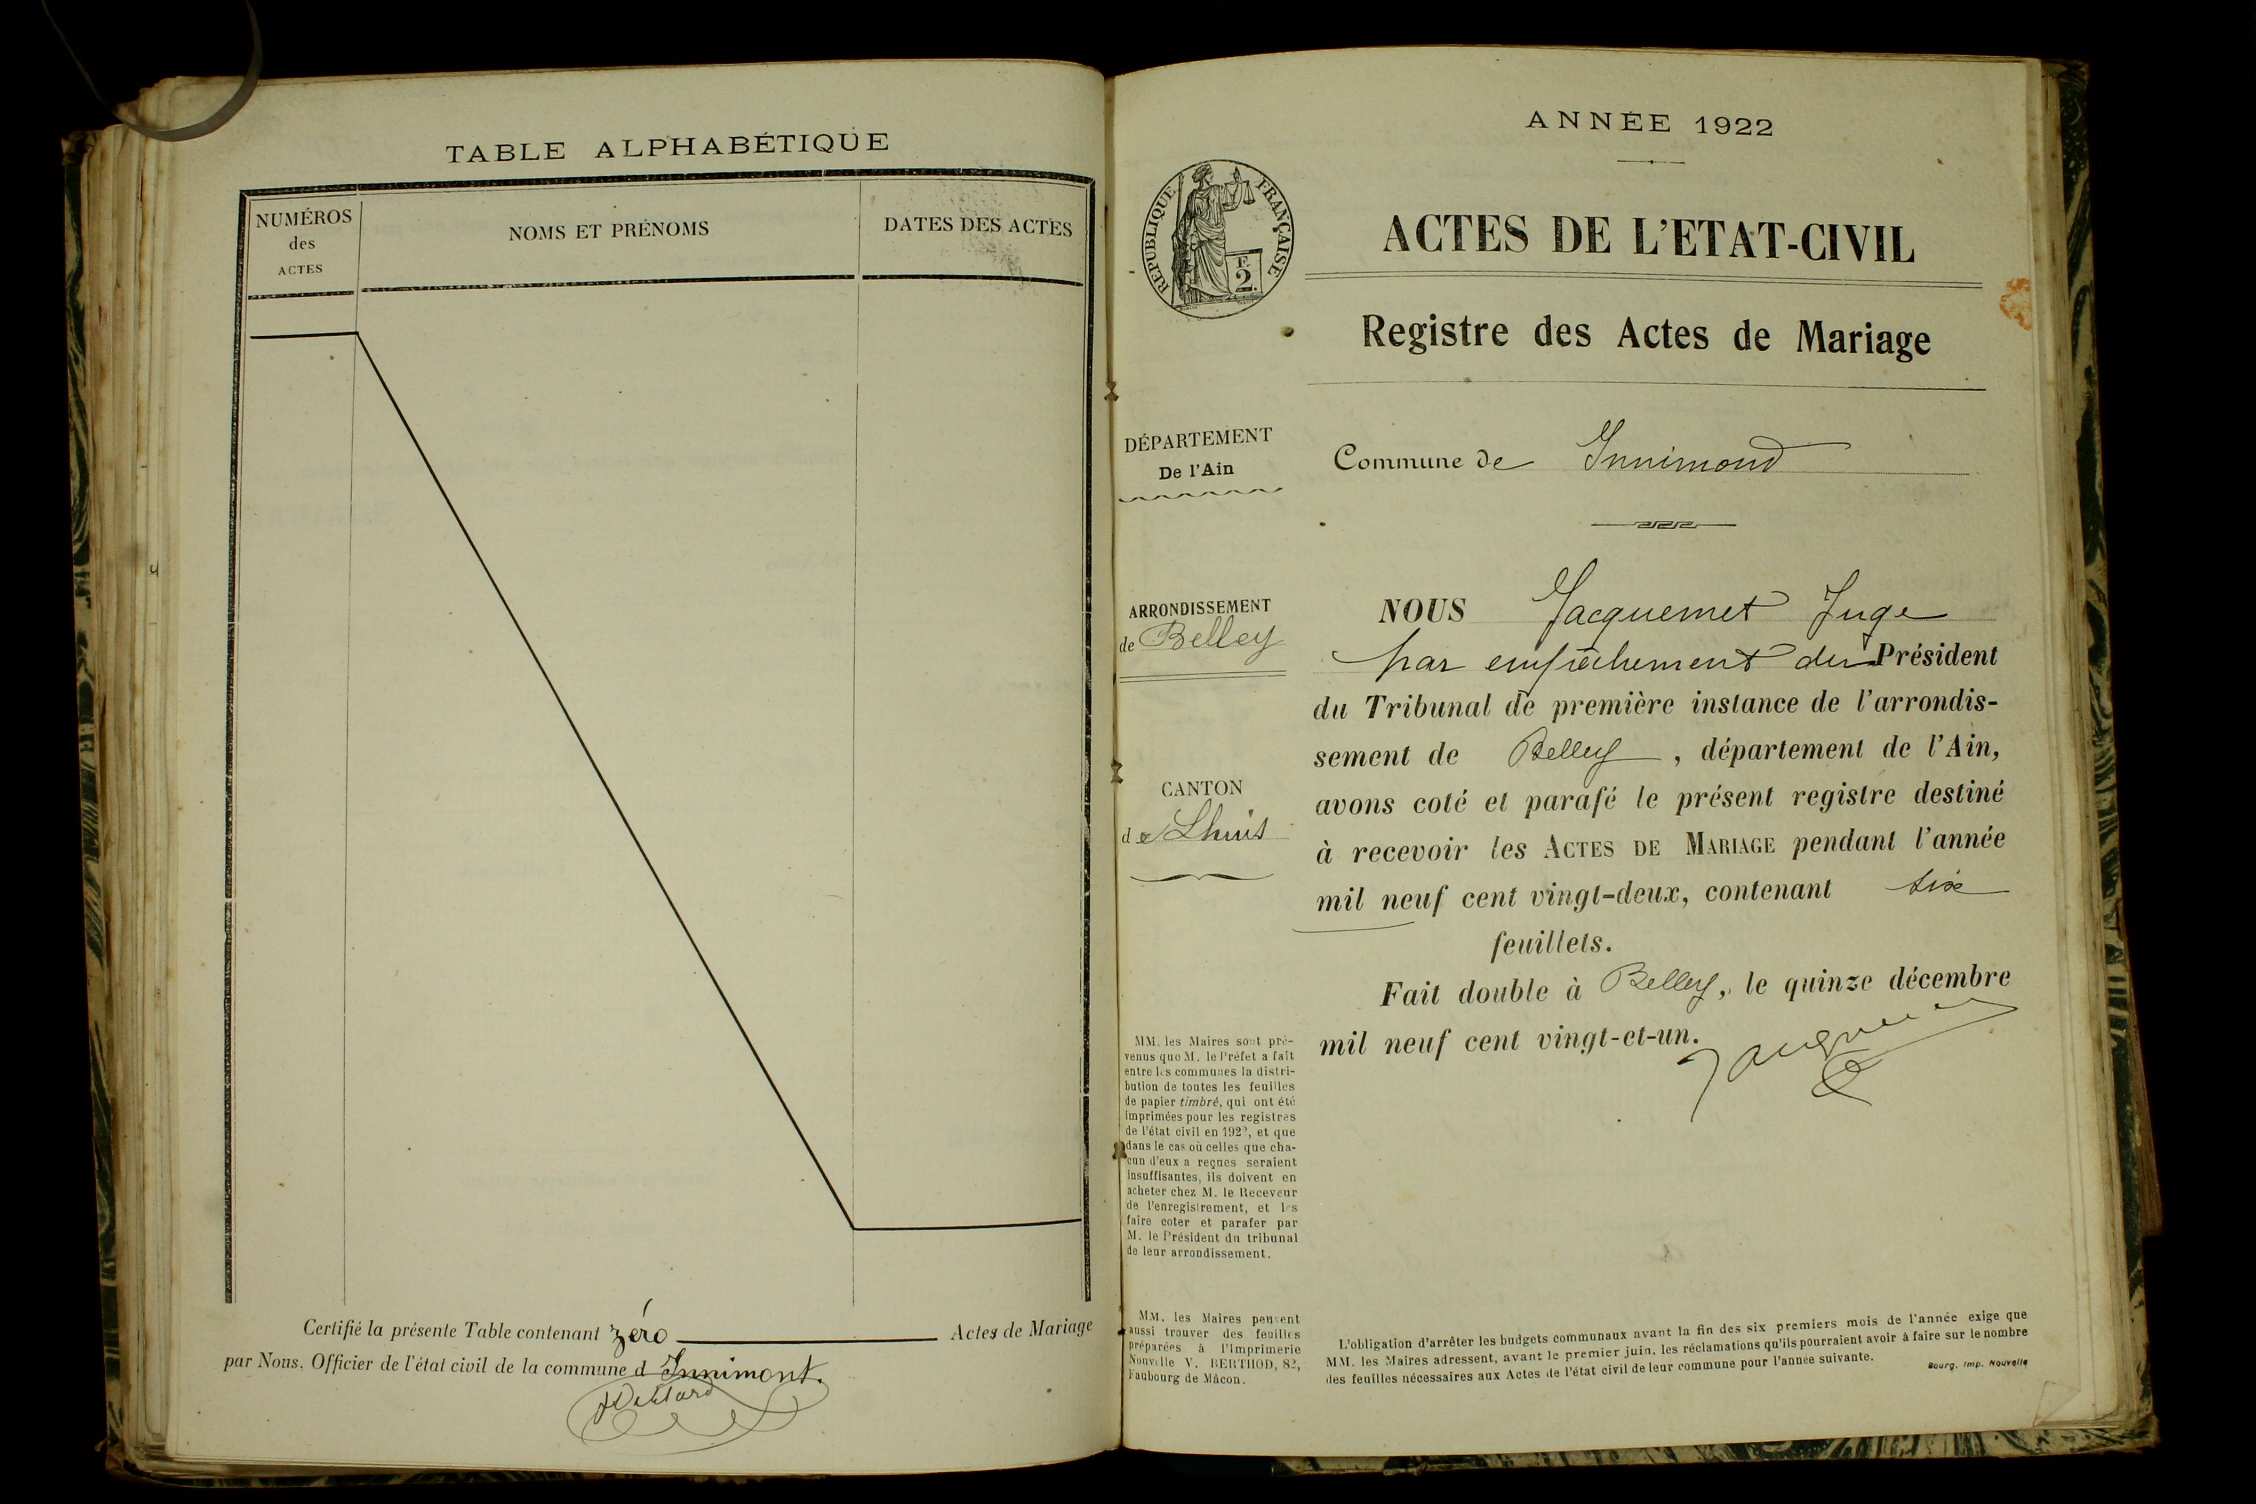 TABLE ALPHABÉTIQUE
NUMÉROS
des
ACTES
NOMS ET PRÉNOMS
DATES DES ACTES
Certifié la présente Table contenant zéro Actes de Mariage
par Nous, Officier de l'état civil de la commune d Innimont.
ANNÉE 1922
RÉPUBLIQUE FRANÇAISE
F.
2.
ACTES DE L'ETAT-CIVIL
Registre des Actes de Mariage
DÉPARTEMENT
De l'Ain
Commune de Innimond
ARRONDISSEMENT
de Belley
CANTON
de Lhuis
NOUS Jacquemet Juge
par empêchement du Président
du Tribunal de première instance de l'arrondis-
sement de Belley, département de l'Ain,
avons coté et parafé le présent registre destiné
à recevoir les ACTES DE MARIAGE pendant l'année
mil neuf cent vingt-deux, contenant six
feuillets.
Fait double à Belley, le quinze décembre
mil neuf cent vingt-et-un.
MM. les Maires sont pré-
venus que M. le Préfet a fait
entre les communes la distri-
bution de toutes les feuilles
de papier timbré, qui ont été
imprimées pour les registres
de l'état civil en 1922, et que
dans le cas où celles que cha-
cun d'eux a reçues seraient
insuffisantes, ils doivent en
acheter chez M. le Receveur
de l'enregistrement, et les
faire coter et parafer par
M. le Président du tribunal
de leur arrondissement.
MM. les Maires peuvent
aussi trouver des feuilles
préparées à l'Imprimerie
Nouvelle V. BERTHOD, 82,
Faubourg de Mâcon.
L'obligation d'arrêter les budgets communaux avant la fin des six premiers mois de l'année exige que
MM. les Maires adressent, avant le premier juin, les réclamations qu'ils pourraient avoir à faire sur le nombre
des feuilles nécessaires aux Actes de l'état civil de leur commune pour l'année suivante.
Bourg. Imp. Nouvelle